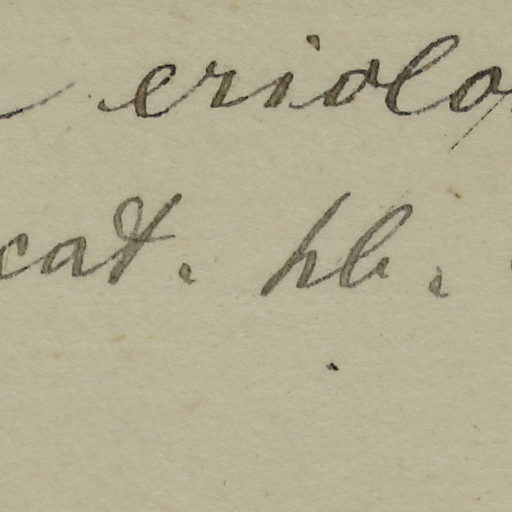 eriolo
cat. hb.